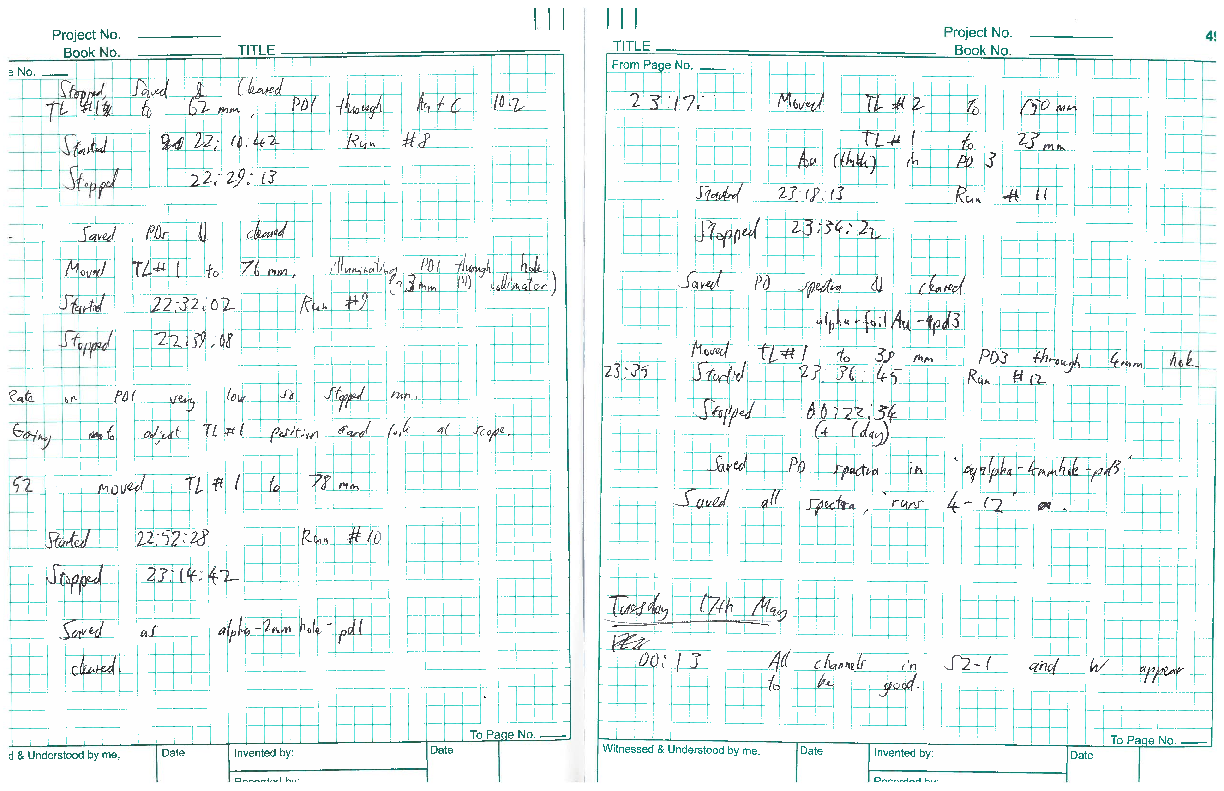 Project No.
Book No.
TITLE
e No.
Stopped, Saved & Cleared
TL #1 to 62 mm, PD1 through Au + C 10:2
Started 22:10:42 Run #8
Stopped 22:29:13
Saved PDs & cleared
Moved TL#1 to 76 mm, illuminating PD1 through hole
mm collimator)
Started 22:32:02 Run #9
Stopped 22:39:08
Rate on PD1 very low so stopped run.
Going to adjust TL#1 position and look at scope.
52 moved TL #1 to 78 mm
Started 22:52:28 Run #10
Stopped 23:14:42
Saved as alpha-2mmhole-pd1
cleared
To Page No.
d & Understood by me,
Date
Invented by:
Date
Recorded by:
Project No.
Book No.
TITLE
49
From Page No.
23:17: Moved TL #2 to 150 mm
TL #1 to 23 mm
Au (thick) in PD 3
Started 23:18:13 Run #11
Stopped 23:34:22
Saved PD spectra & cleared
alpha-foilAu-4pd3
Moved TL#1 to 38 mm PD3 through 4mm hole
23:35 Started 23:36:45 Run #12
Stopped 00:22:34
(+ 1 day)
Saved PD spectra in "alpha-4mmhole-pd3"
Saved all spectra, "runs 4-12"
Tuesday 17th May
00:13 All channels in S2-1 and W appear
to be good.
To Page No.
Witnessed & Understood by me,
Date
Invented by:
Date
Recorded by: